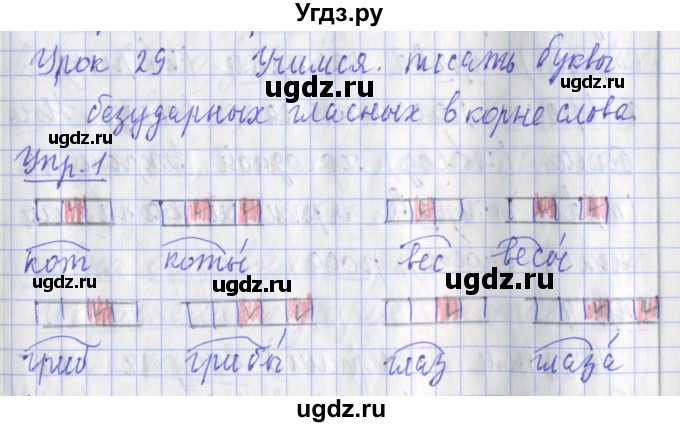 Угдз.ру
Урок 29. Учимся писать буквы
ugdz.ru ugdz.ru
безударных гласных в корне слова
ugdz.ru ugdz.ru
Упр. 1
ugdz.ru ugdz.ru
кот коты́ вес весы́
ugdz.ru ugdz.ru
гриб грибы́ глаз глаза́
ugdz.ru ugdz.ru